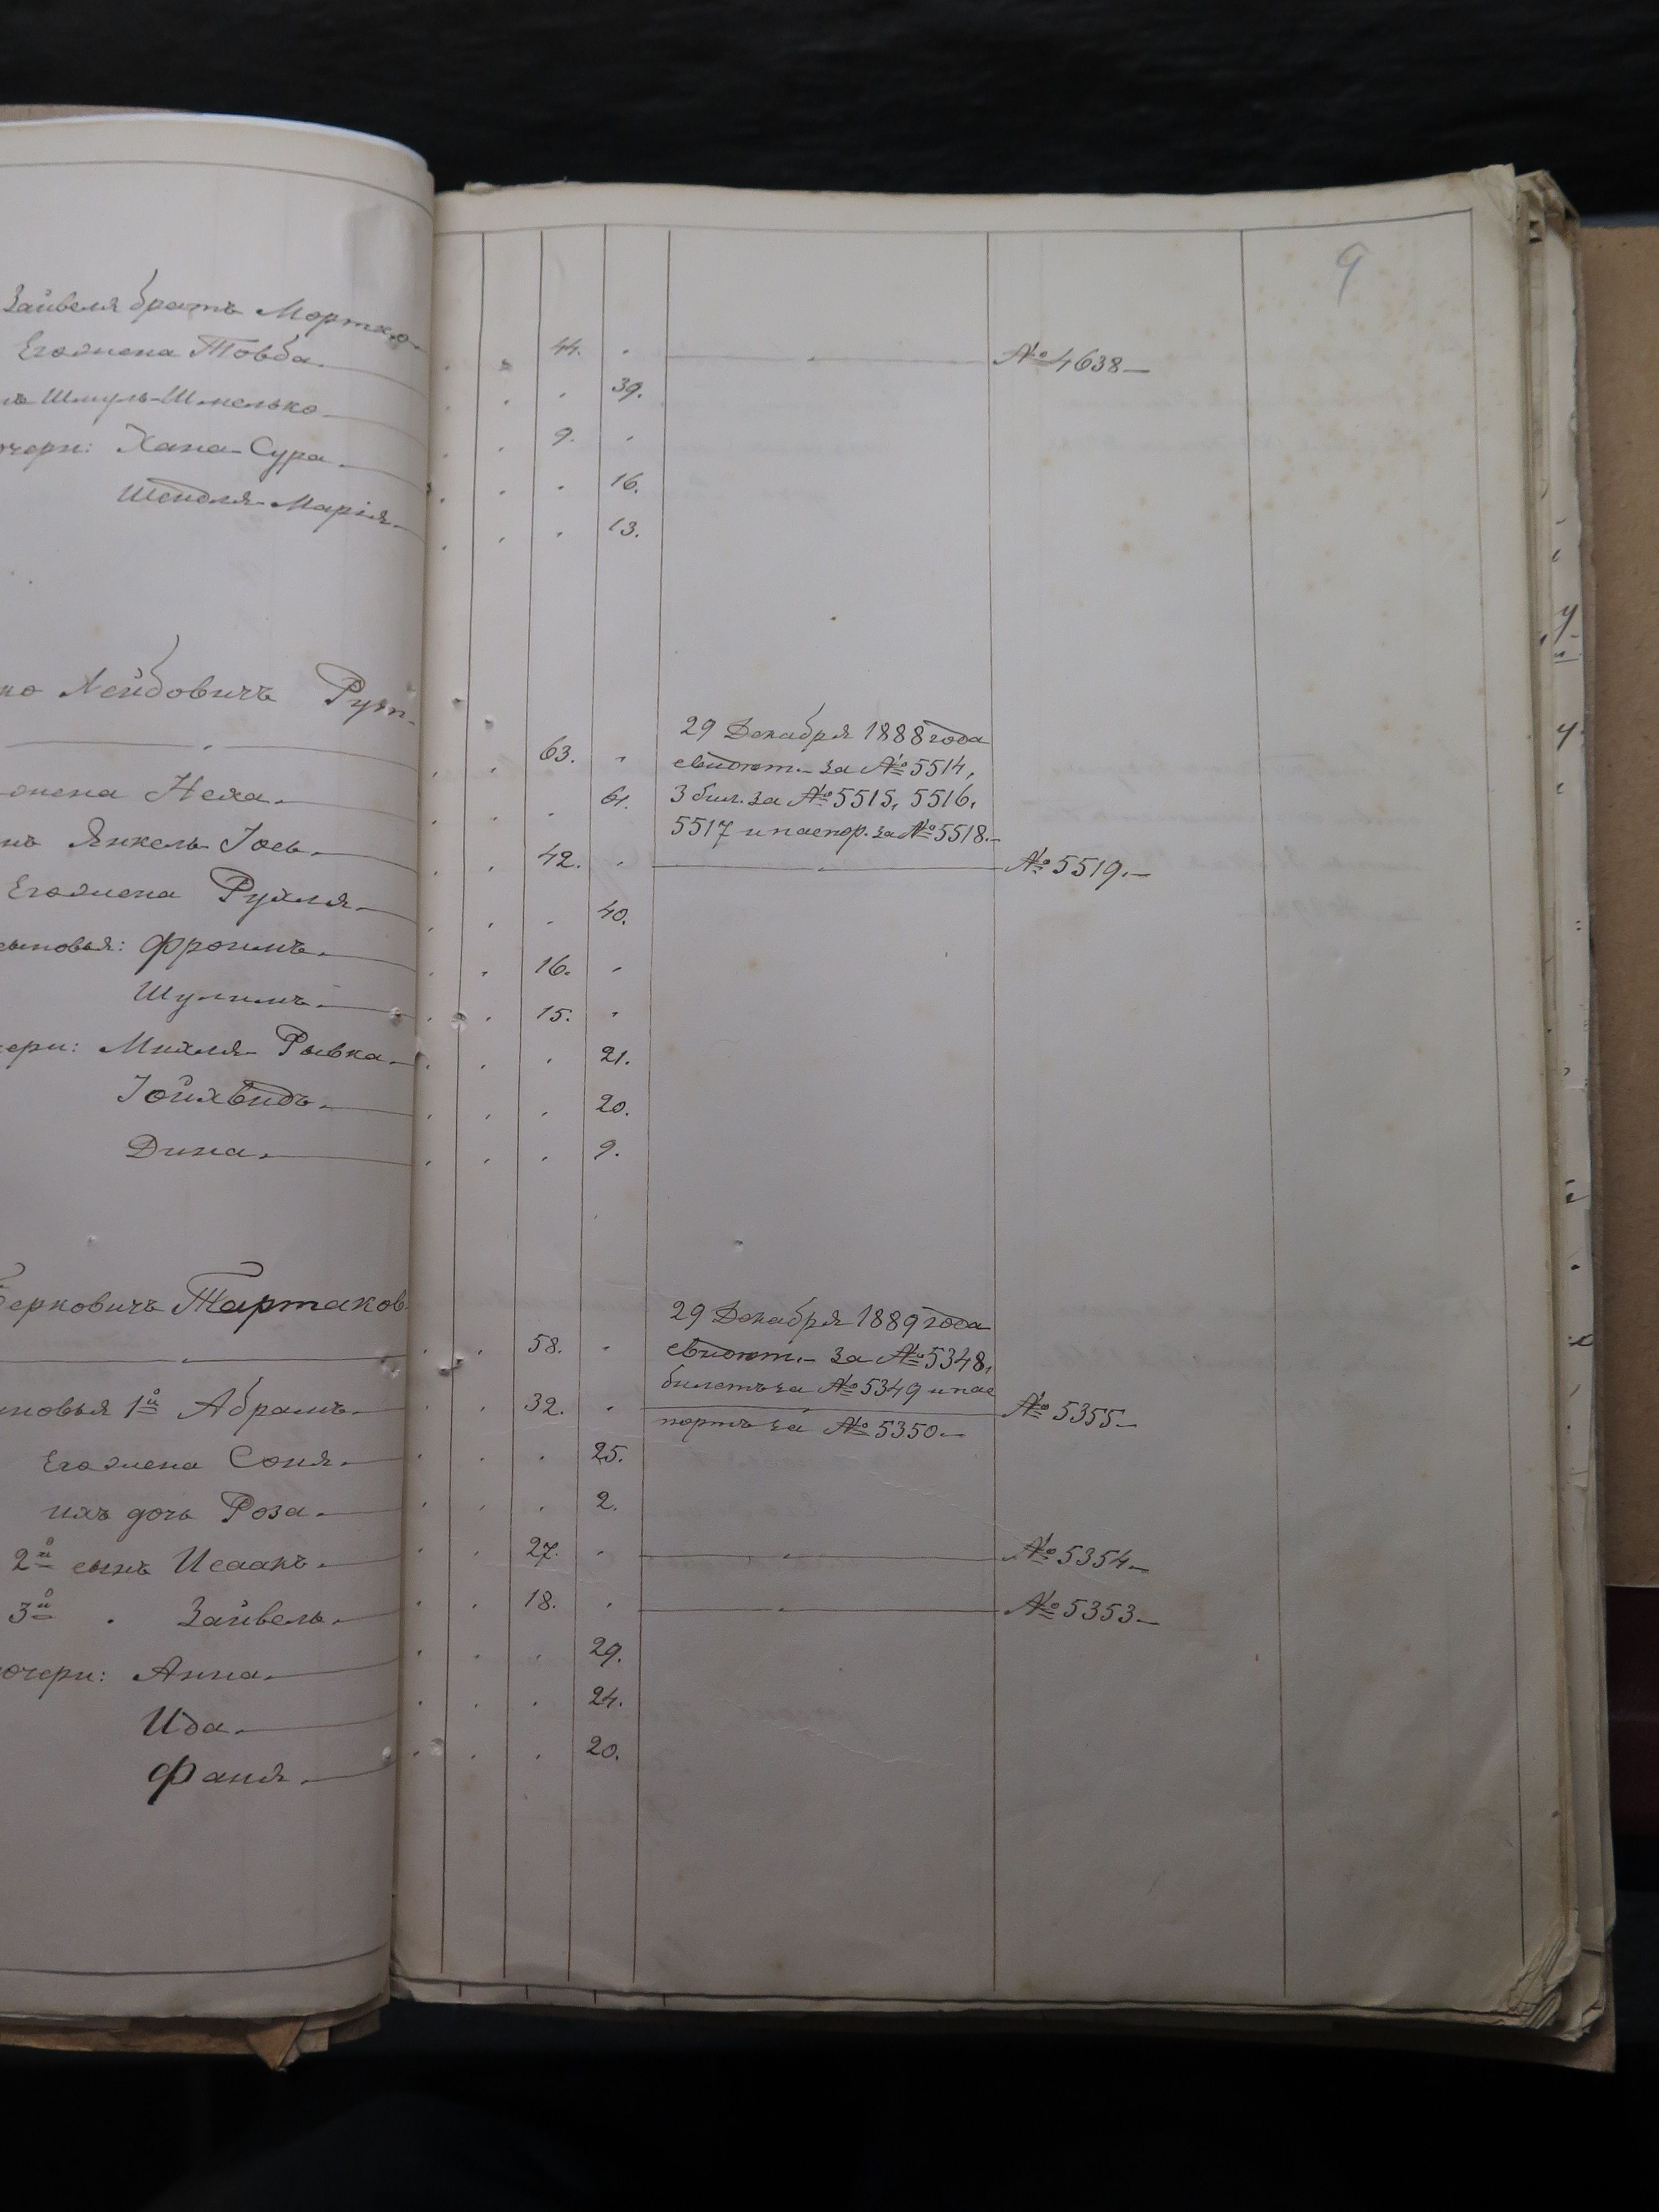 9
Зайвеля братъ Мортко 44. № 4638
Его жена Товба 39.
Шмуль-Шмелько 9.
Хана-Сура 16.
Шейдля-Марія 13.
Лейбовичъ 63. 29 Декабря 1888 года
свидѣт. за № 5514,
жена Неха 61. 3 бил. за № 5515, 5516,
5517 и паспор. за № 5518.
Янкель-Іось 42. № 5519.
Его жена Рухля 40.
сыновья: Фроимъ 16.
Шулимъ 15.
Михля-Рывка 21.
Іойхвидъ 20.
Дина 9.
Берковичъ Тартаков 58. 29 Декабря 1889 года
свидѣт. за № 5348,
билетъ за № 5349 и пас
1й Абрамъ 32. портъ за № 5350. № 5355
Его жена Соня 25.
ихъ дочь Роза 2.
2й сынъ Исаакъ 27. № 5354
3й " Зайвель 18. № 5353
Анна 29.
Ида 24.
Фаня 20.